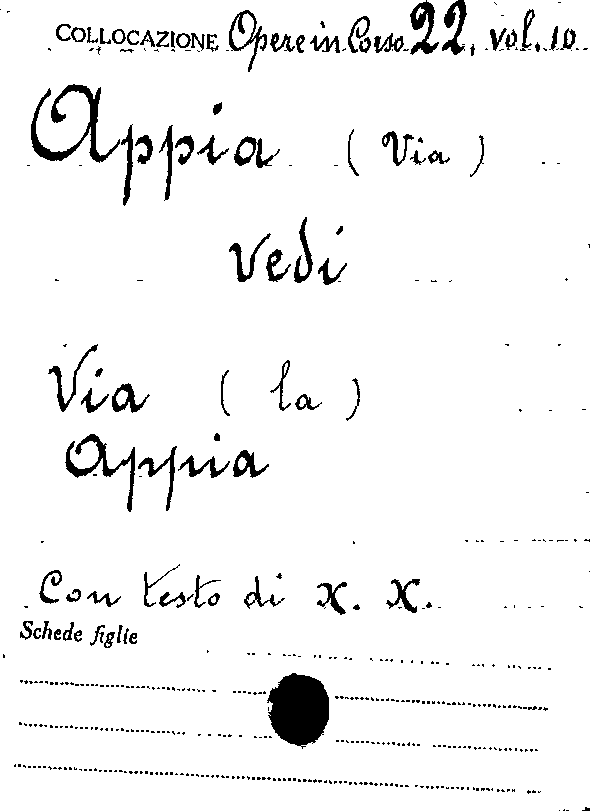 COLLOCAZIONE Opere in Corso 22. vol. 10
Appia (Via)
vedi
Via (la)
Appia
Con testo di X. X.
Schede figlie